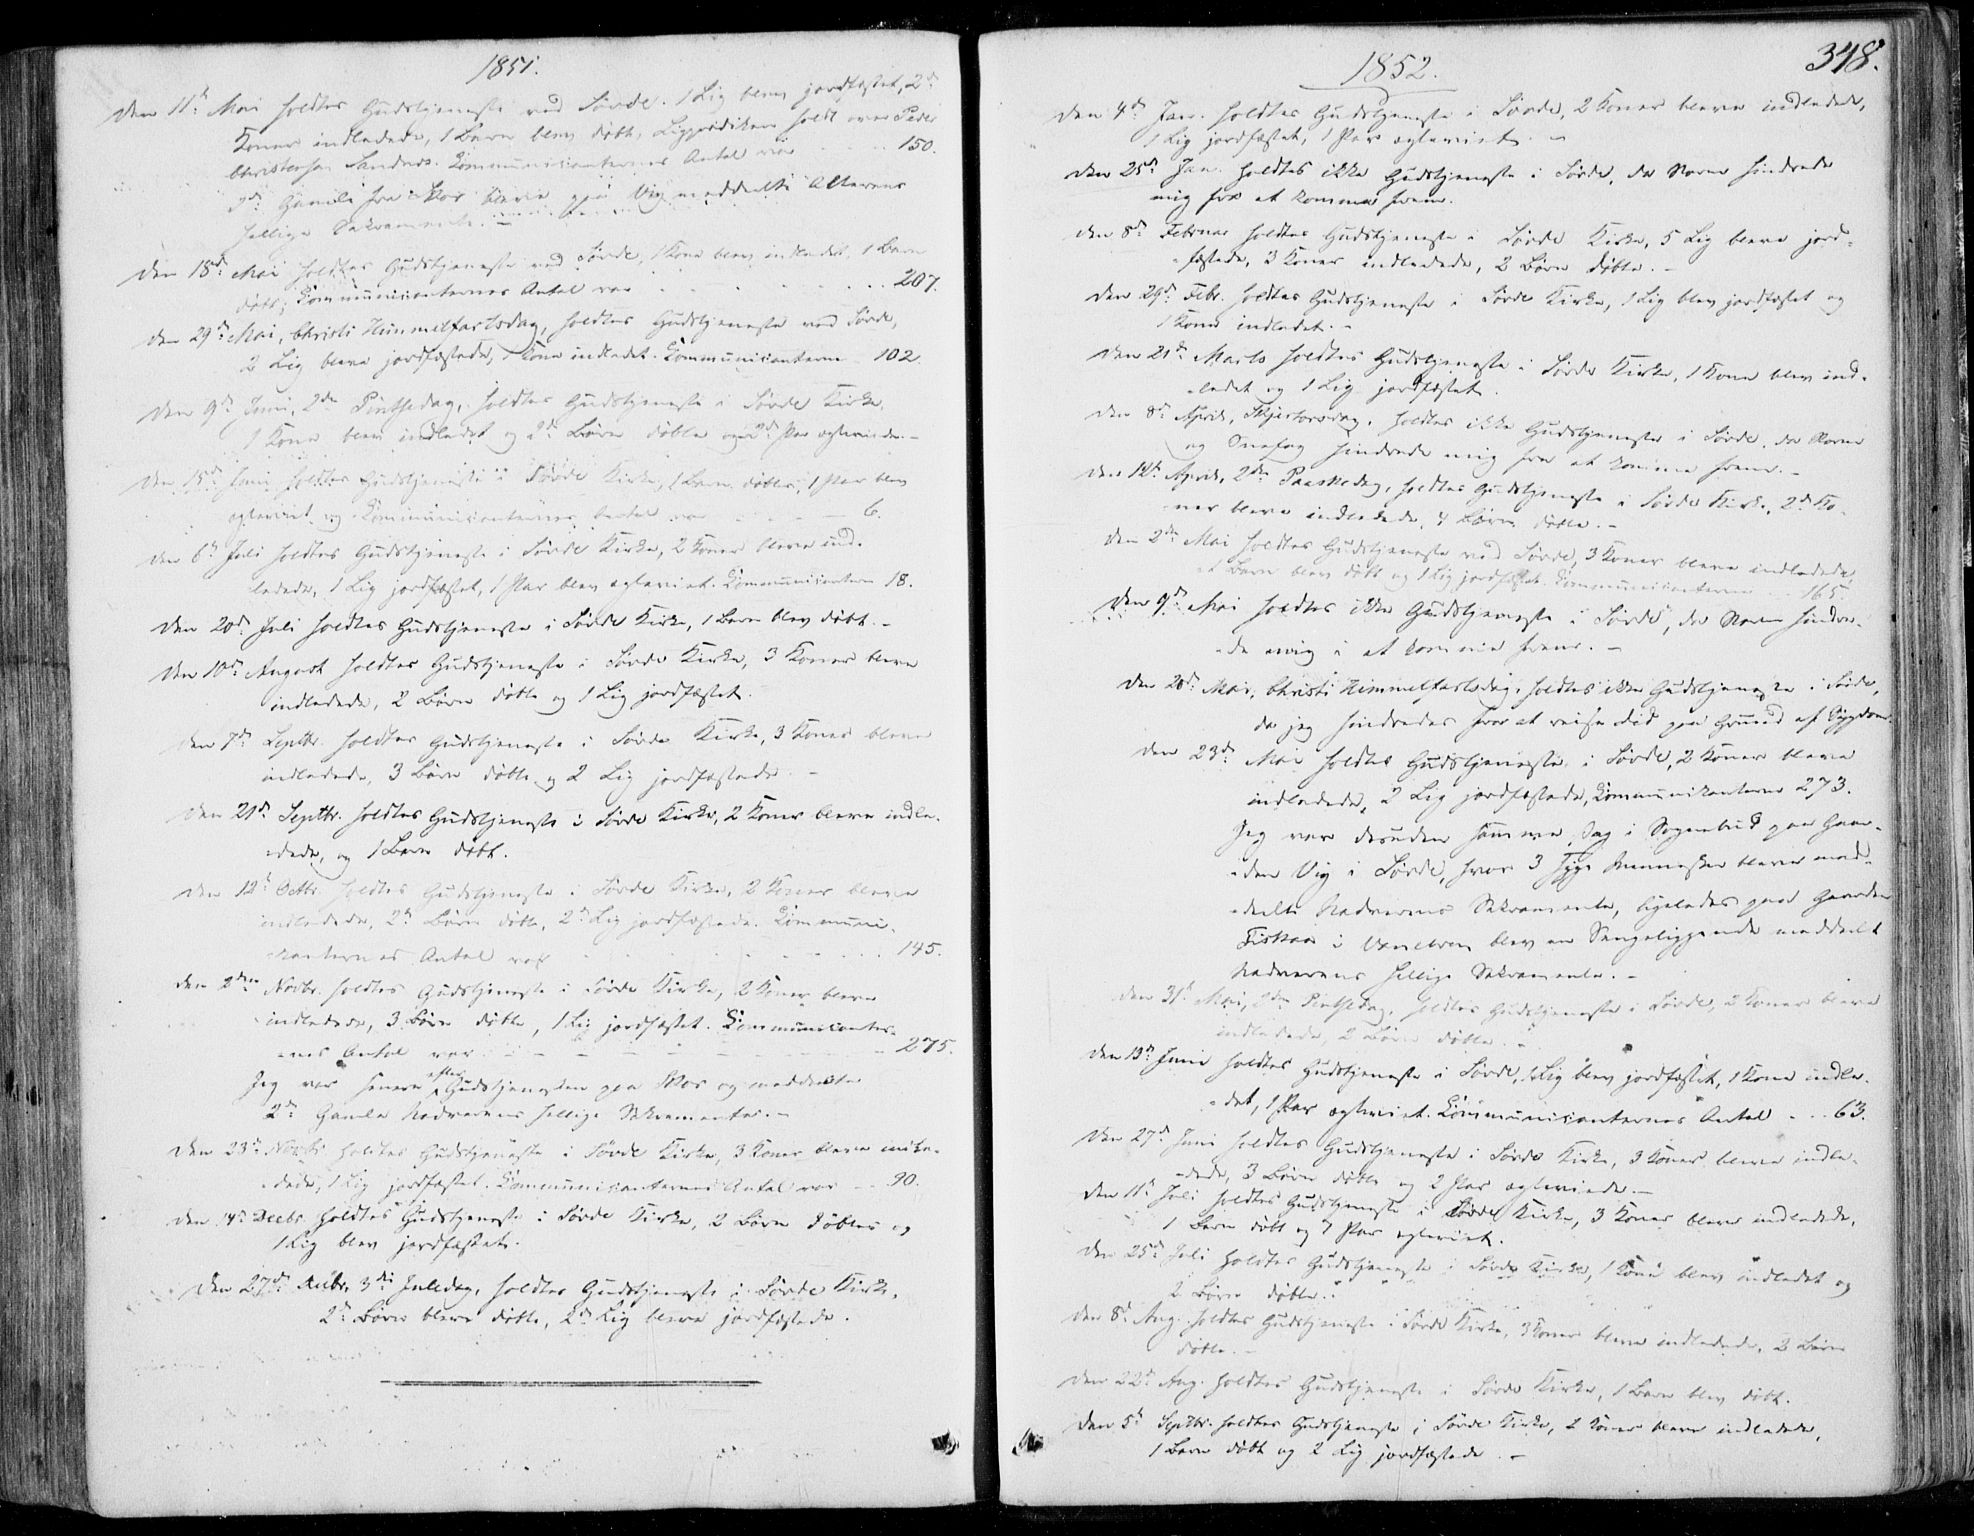 1851.
Den 11te Mai holdtes Gudstjeneste ved Sövde. 1 Lig blev jordfæstet, 2de
Koner indledede, 1 Barn blev døbt, Ligprædiken holdt over Peder
Christensen Sandnes. Communicanternes Antal var 150.
2de Gamle fra Skor bleve paa Vig meddelte Alterens
hellige Sakramente. –
Den 18de Mai holdtes Gudstjeneste ved Sövde, 1 Kone blev indledet, 1 Barn
døbt; Communicanternes Antal var 207.
Den 29de Mai, Christi Himmelfartsdag, holdtes Gudstjeneste ved Sövde,
2 Lig bleve jordfæstede, 1 Kone indledet. Communicanterne 102.
Den 9de Juni, 2den Pintsedag, holdtes Gudstjeneste i Sövde Kirke,
1 Kone blev indledet og 2de Børn døbte og 2de Par egteviede. –
Den 15de Juni holdtes Gudstjeneste i Sövde Kirke, 1 Barn døbtes, 1 Par blev
egteviet og Communicanternes Antal var – – – 6.
Den 6te Juli holdtes Gudstjeneste i Sövde Kirke, 2 Koner bleve ind-
ledede, 1 Lig jordfæstet, 1 Par blev egteviet. Communicantern 18.
Den 20de Juli holdtes Gudstjeneste i Sövde Kirke, 1 Barn blev døbt. –
Den 10de August holdtes Gudstjeneste i Sövde Kirke, 3 Koner bleve
indledede, 2 Børn døbte og 1 Lig jordfæstet.
Den 7de Septbr. holdtes Gudstjeneste i Sövde Kirke, 3 Koner bleve
indledede, 3 Børn døbte og 2 Lig jordfæstede. –
Den 21de Septbr. holdtes Gudstjeneste i Sövde Kirke, 2 Koner bleve indle-
dede, og 1 Barn døbt.
Den 12te Octbr. holdtes Gudstjeneste i Sövde Kirke, 2 Koner bleve
indledede, 2de Børn døbte, 2de Lig jordfæstede. Communi-
kanternes Antal var 145.
Den 2den Novbr. holdtes Gudstjeneste i Sövde Kirke, 2 Koner bleve
indledede, 3 Børn døbte, 1 Lig jordfæstet. Communicanter-
nes Antal var – – – – 275.
Jeg var senere efter Gudstjenesten paa Skor og meddeelte
2de Gamle Nadverens hellige Sakramenter. –
Den 23de Novbr. holdtes Gudstjeneste i Sövde Kirke, 3 Koner bleve indle-
dede, 1 Lig jordfæstet. Communicanternes Antal var – 90.
Den 14de Decbr. holdtes Gudstjeneste i Sövde Kirke, 2 Børn døbtes og
1 Lig blev jordfæstet.
Den 27de Decbr. 3die Juledag, holdtes Gudstjeneste i Sövde Kirke,
2de Børn bleve døbte, 2de Lig bleve jordfæstede.
1852.
348.
Den 4de Jan. holdtes Gudstjeneste i Sövde, 2 Koner bleve indledede,
1 Lig jordfæstet, 1 Par egteviet. –
Den 25de Jan. holdtes ikke Gudstjeneste i Sövde, da Storm hindrede
mig fra at komme frem.
Den 8de Februar holdtes Gudstjeneste i Sövde Kirke, 5 Lig bleve jord-
fæstede, 3 Koner indledede, 2 Børn døbte. –
Den 29de Febr. holdtes Gudstjeneste i Sövde Kirke, 1 Lig blev jordfæstet og
1 Kone indledet. –
Den 21de Marts holdtes Gudstjeneste i Sövde Kirke, 1 Kone blev ind-
ledet og 1 Lig jordfæstet.
Den 8de April, Skjertorsdag, holdtes ikke Gudstjeneste i Sövde, da Storm
og Snefog hindrede mig fra at komme frem. –
Den 12te April, 2den Paaskedag, holdtes Gudstjeneste i Sövde Kirke, 2de Ko-
ner bleve indledede, 4 Børn døbte. –
Den 2den Mai holdtes Gudstjeneste ved Sövde, 3 Koner bleve indledede,
et Barn blev døbt og 1 Lig jordfæstet. Communicanterne 165.
Den 9de Mai holdtes ikke Gudstjeneste i Sövde, da Storm hindre-
de mig i at komme frem. –
Den 20de Mai, Christi Himmelfartsdag, holdtes ikke Gudstjeneste i Sövde,
da jeg hindredes fra at reise did paa Grund af Sygdom.
Den 23de Mai holdtes Gudstjeneste i Sövde, 2 Koner bleve
indledede, 2 Lig jordfæstede, Communikanterne 273.
Jeg var desuden samme Dag i Sognebud paa Gaar-
den Vig i Sövde, hvor 3 syge Mennesker bleve med-
deelte Nadverens Sakramente, ligeledes paa Gaarden
Fiskaa i Vanelven blev en Sengeliggende meddeelt
Nadverens hellige Sakramente. –
Den 31te Mai, 2den Pintsedag, holdtes Gudstjeneste i Sövde, 2 Koner bleve
indledede, 2 Børn døbte. –
Den 13de Juni holdtes Gudstjeneste i Sövde, 1 Lig blev jordfæstet, 1 Kone indle-
det, 1 Par egteviet. Communicanternes Antal – 63.
Den 27de Juni holdtes Gudstjeneste i Sövde Kirke, 3 Koner bleve indle-
dede, 3 Børn døbte og 2 Par egteviede. –
Den 11te Juli holdtes Gudstjeneste i Sövde Kirke, 3 Koner bleve indledede,
1 Barn døbt og 1 Par egteviet.
Den 25de Juli holdtes Gudstjeneste i Sövde Kirke, 1 Kone blev indledet og
2 Børn døbte.
Den 8de Aug. holdtes Gudstjeneste i Sövde Kirke, 3 Koner bleve indledede, 2 Børn
døbte. –
Den 22de Aug. holdtes Gudstjeneste i Sövde Kirke, 1 Barn blev døbt.
Den 5te Septbr. holdtes Gudstjeneste i Sövde Kirke, 2 Koner bleve indledede,
1 Barn døbt og 2 Lig jordfæstede. –